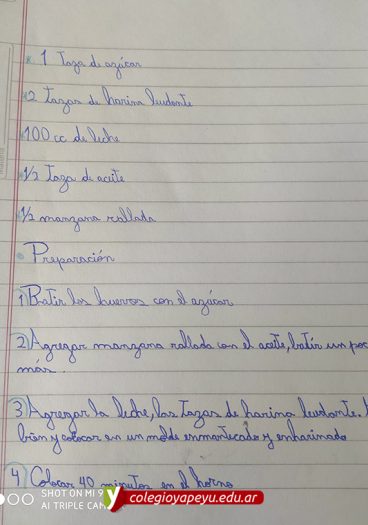 * 1 Taza de azúcar
*2 Tazas de harina leudante
*100 cc de leche
*1/2 Taza de aceite
*1/2 manzana rallada
• Preparación
1) Batir los huevos con el azúcar
2) Agregar manzana rallada con el aceite, batir un poc
más.
3) Agregar la leche, las Tazas de harina leudante.
bien y colocar en un molde enmantecado y enharinado
4) Colocar 40 minutos en el horno
SHOT ON MI 9
AI TRIPLE CAM
colegioyapeyu.edu.ar